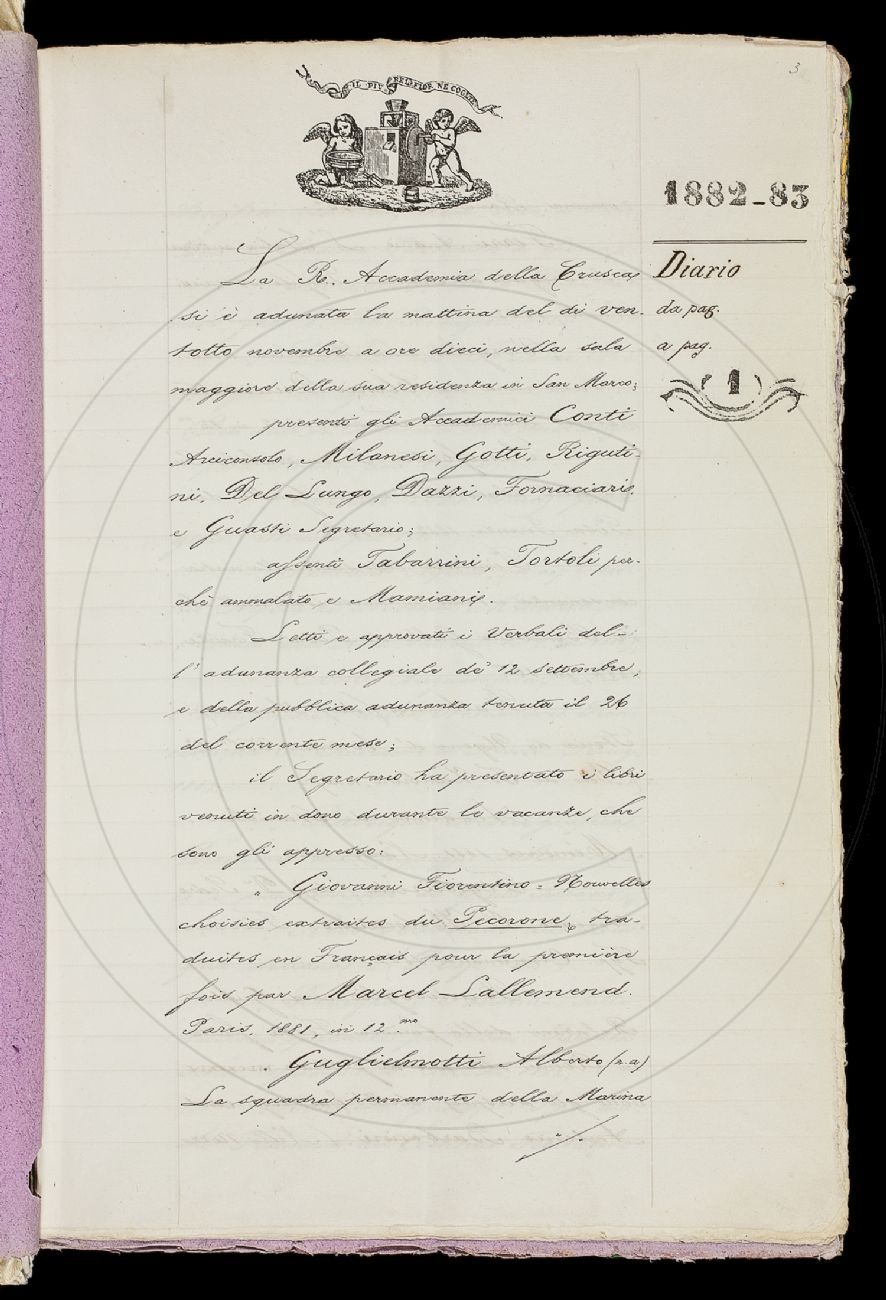 3
IL PIÙ BEL FIOR NE COGLIE
1882-83
Diario
da pag.
a pag.
1
La R. Accademia della Crusca,
si è adunata la mattina del dì ven-
totto novembre a ore dieci, nella sala
maggiore della sua residenza in San Marco;
presenti gli Accademici Conti
Arciconsolo, Milanesi, Gotti, Riguti-
ni, Del Lungo, Dazzi, Fornaciari,
e Guasti Segretario;
assenti Tabarrini, Tortoli per-
chè ammalato, e Mamiani.
Letti e approvati i Verbali del-
l'adunanza collegiale de' 12 settembre,
e della pubblica adunanza tenuta il 26
del corrente mese;
il Segretario ha presentato i libri
venuti in dono durante le vacanze, che
sono gli appresso:
„ Giovanni Fiorentino = Nouvelles
choisies extraites du Pecorone, tra-
duites en Français pour la première
fois par Marcel Lallemend.
Paris, 1881, in 12.mo
„ Guglielmotti Alberto (s.a)
La squadra permanente della Marina
./.